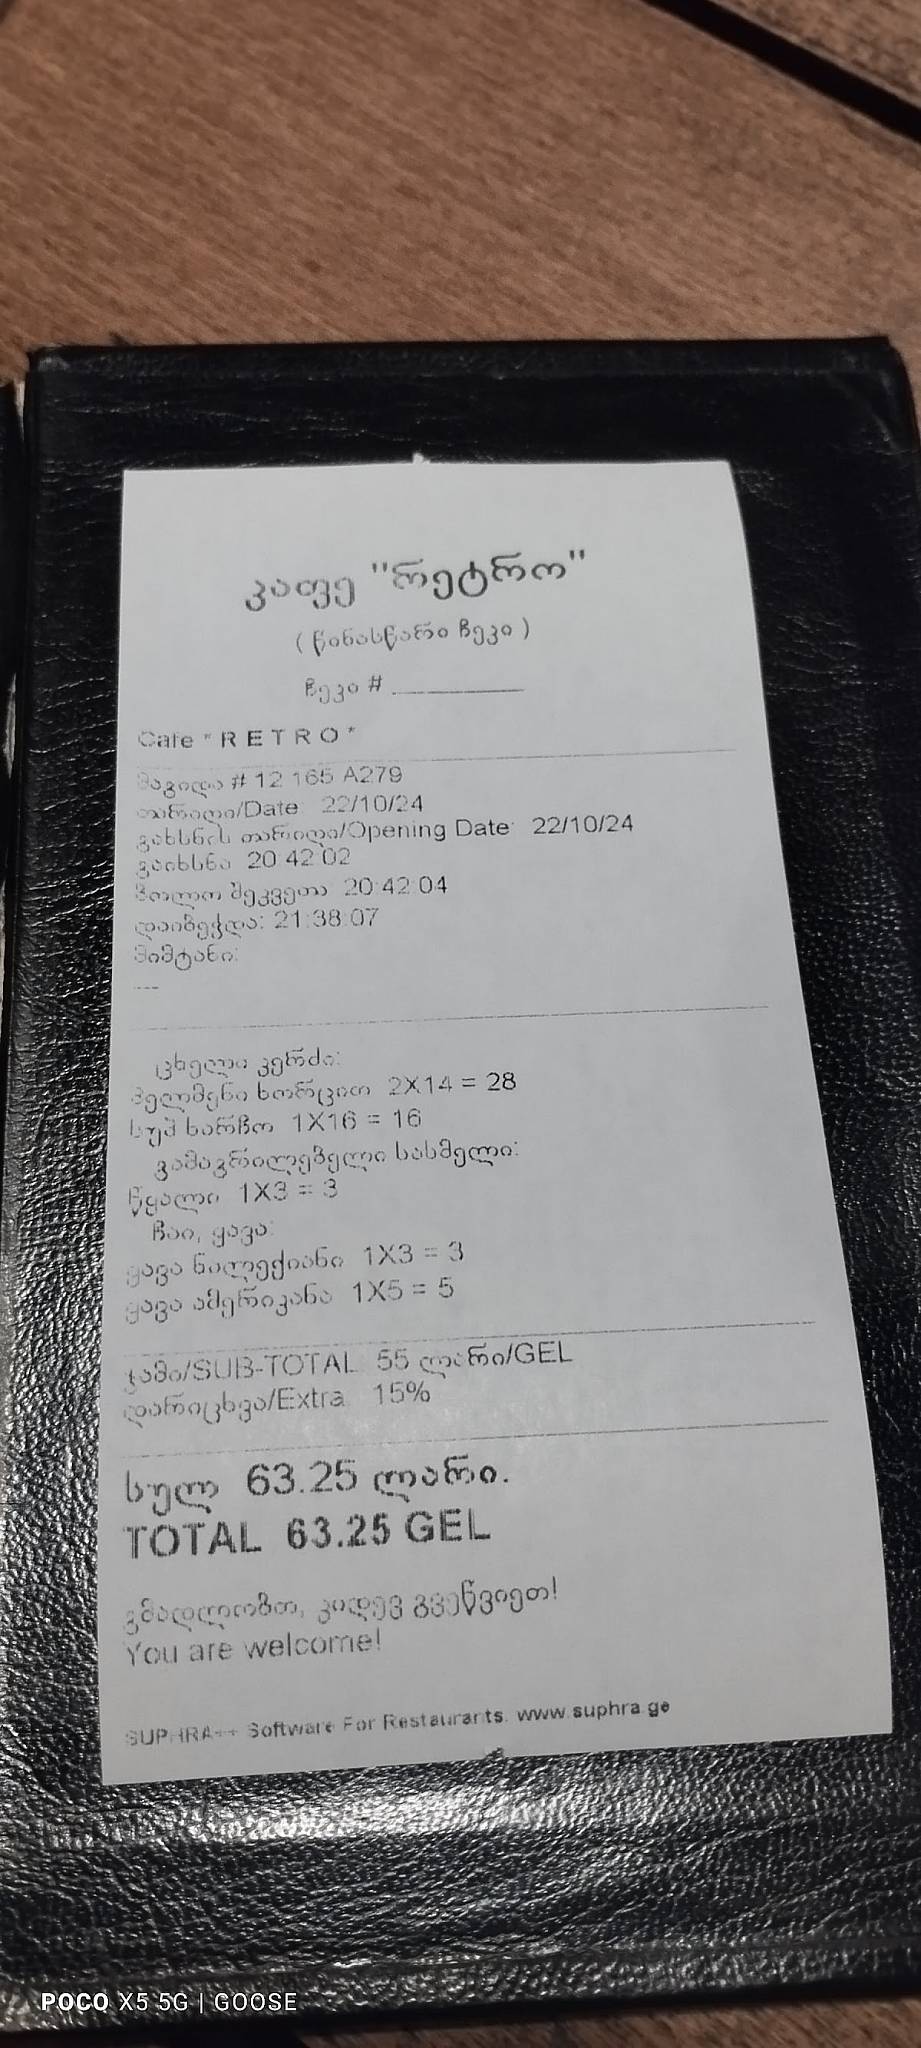 კაფე "რეტრო"
( წინასწარი ჩეკი )
ჩეკი # __________
Cafe * R E T R O *
მაგიდა # 12 165 A279
თარიღი/Date: 22/10/24
გახსნის თარიღი/Opening Date: 22/10/24
გაიხსნა 20:42:02
ბოლო შეკვეთა 20:42:04
დაიბეჭდა: 21:38:07
მიმტანი:
---
ცხელი კერძი:
პელმენი ხორცით 2X14 = 28
სუპ ხარჩო 1X16 = 16
გამაგრილებელი სასმელი:
წყალი 1X3 = 3
ჩაი, ყავა:
ყავა ნალექიანი 1X3 = 3
ყავა ამერიკანა 1X5 = 5
ჯამი/SUB-TOTAL 55 ლარი/GEL
დარიცხვა/Extra 15%
სულ 63.25 ლარი.
TOTAL 63.25 GEL
გმადლობთ, კიდევ გვეწვიეთ!
You are welcome!
SUPHRA++ Software For Restaurants. www.suphra.ge
POCO X5 5G | GOOSE